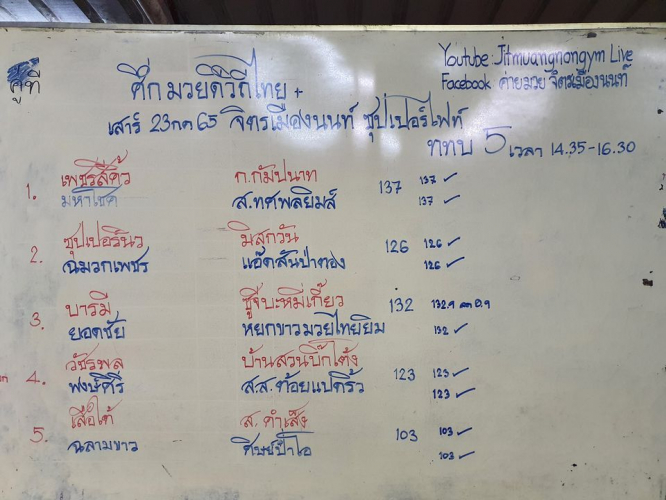 Youtube: Jitmuangnongym Live
Facebook ค่ายมวย จิตรเมืองนนท์
คู่ที่
ศึกมวยดีวิถีไทย +
เสาร์ 23 กค 65 จิตรเมืองนนท์ ซุปเปอร์ไฟท์
ททบ 5 เวลา 14.35-16.30
1. เพชรสี่คิ้ว ก.กัมปนาท 137 137 ✓
มหาโชค ส.ทศพลยิมส์ 137 ✓
2. ซุปเปอร์นิว มิสุกวัน 126 126 ✓
ฉมวกเพชร แอ๊ดสันป่าตอง 126 ✓
3. บารมี ซูจีบะหมี่เกี๊ยว 132 132.9 ลด 0.9
ยอดชัย หยกขาวมวยไทยยิม 132 ✓
4. วัชรพล บ้านสวนบิ๊กโต้ง 123 123 ✓
พงษ์ศิริ ส.ส.ต้อยแปดริ้ว 123 ✓
5. เสือใต้ ส. คำเส็ง 103 103 ✓
ฉลามขาว ศิษย์ป๋าโอ 103 ✓